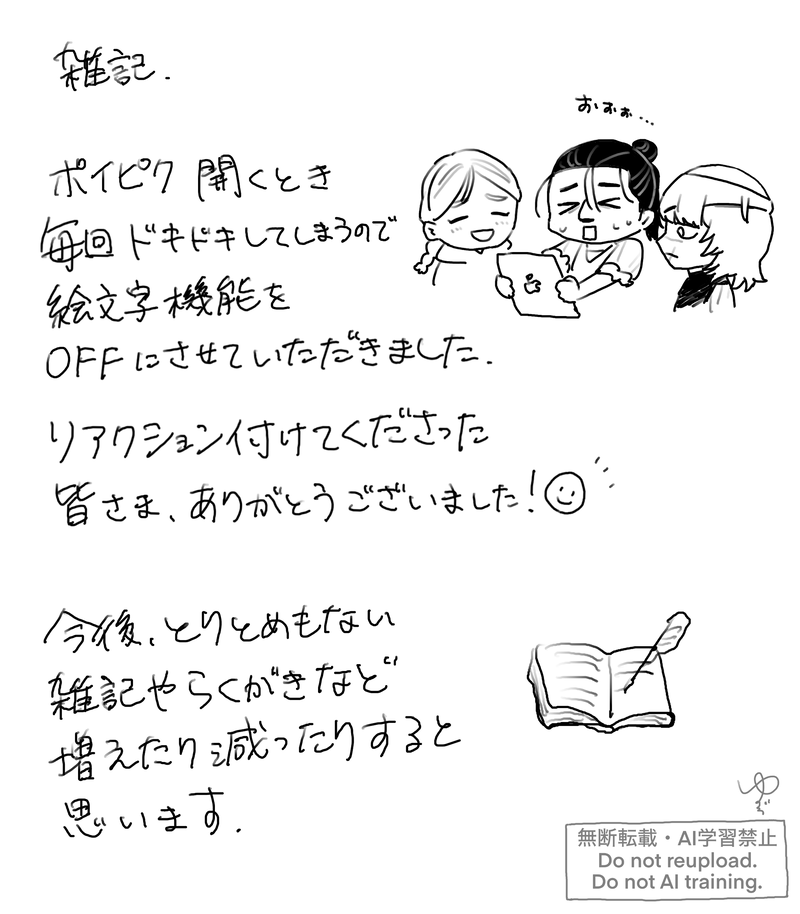 雑記.
おぉぉ…
ポイピク 開くとき
毎回 ドキドキしてしまうので
絵文字機能を
OFFにさせていただきました.
リアクション付けてくださった
皆さま、ありがとうございました!
今後、とりとめもない
雑記やらくがきなど
増えたり減ったりすると
思います.
無断転載・AI学習禁止
Do not reupload.
Do not AI training.